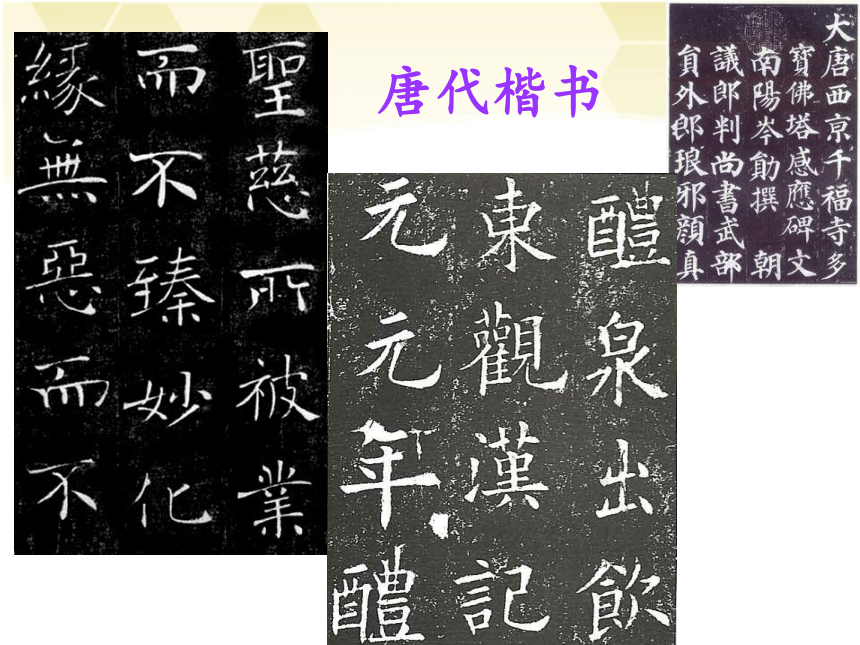 唐代楷书
聖慈所被業
而不臻妙化
緣無惡而不
醴泉出飲
東觀漢記
元元年醴
大唐西京千福寺多
寶佛塔感應碑文
南陽岑勛撰 朝
議郎判尚書武部
員外郎琅邪顏真